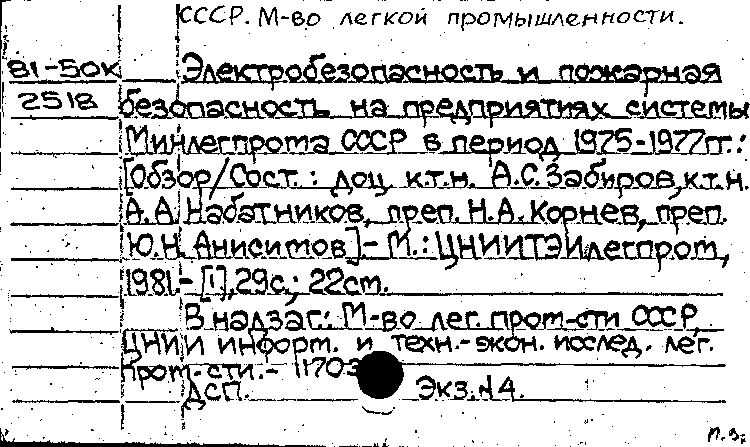 СССР. М-во легкой промышленности.
81-50К Электробезопасность и пожарная
2518 безопасность на предприятиях системы
Минлегпрома СССР в период 1975-1977гг.:
[Обзор/Сост.: доц. к.т.н. А.С. Забиров, к.т.н.
А.А. Набатников, преп. Н.А. Корнев, преп.
Ю.Н. Анисимов]- М.: ЦНИИТЭИлегпром,
1981.- [1], 29с.; 22см.
В надзаг.: М-во лег. пром-сти СССР,
ЦНИИ информ. и техн.-экон. исслед. лег.
пром-сти.- 11703
ДСП. Экз.N4.
п.з.